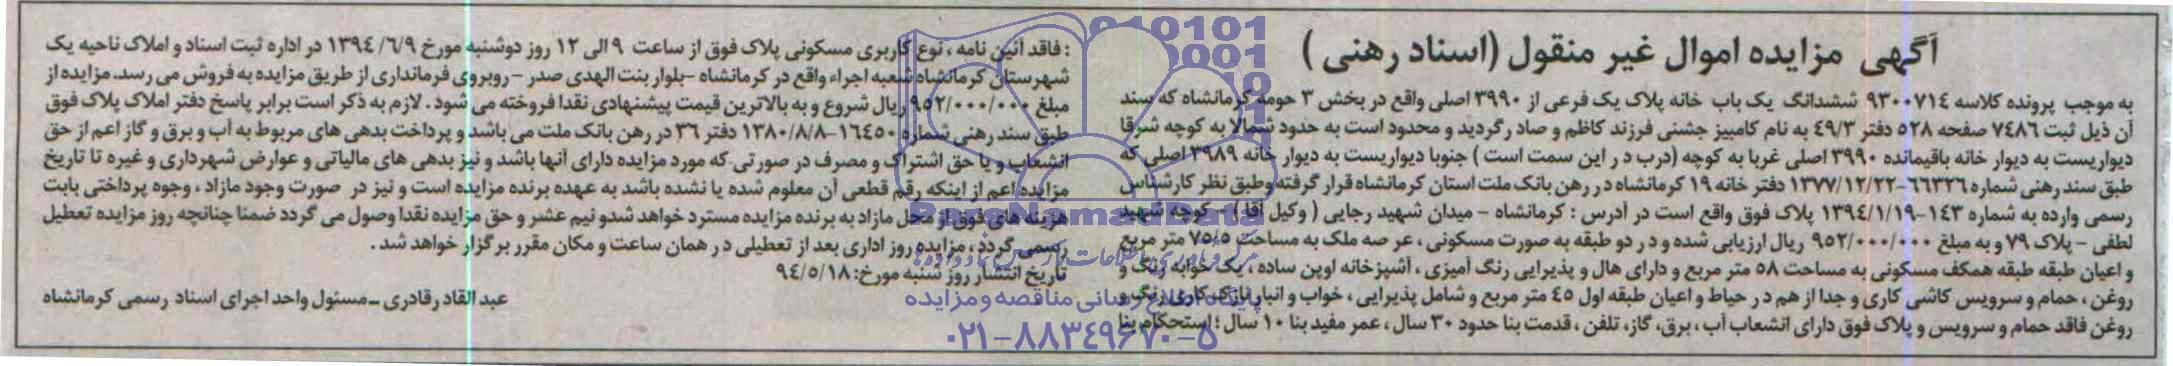 آگهی مزایده اموال غیر منقول (اسناد رهنی)
به موجب پرونده کلاسه ۹۳۰۰۷۱٤ ششدانگ یک باب خانه پلاک یک فرعی از ۳۹۹۰ اصلی واقع در بخش ۳ حومه کرمانشاه که سند
آن ذیل ثبت ۷٤۸٦ صفحه ۵۲۸ دفتر ٤۹/۳ به نام کامبیز جشنی فرزند کاظم و صادر گردید و محدود است به حدود شمالا به کوچه شرقا
دیواریست به دیوار خانه باقیمانده ۳۹۹۰ اصلی غربا به کوچه (درب در این سمت است) جنوبا دیواریست به دیوار خانه ۳۹۸۹ اصلی که
طبق سند رهنی شماره ٦٦۳۲٦-۱۳۷۷/۱۲/۲۲ دفتر خانه ۱۹ کرمانشاه در رهن بانک ملت استان کرمانشاه قرار گرفته وطبق نظر کارشناس
رسمی وارده به شماره ۱٤۳-۱۳۹٤/۱/۱۹ پلاک فوق واقع است در آدرس : کرمانشاه - میدان شهید رجایی ( وکیل آقا ) - کوچه شهید
لطفی - پلاک ۷۹ و به مبلغ ۹۵۲/۰۰۰/۰۰۰ ریال ارزیابی شده و در دو طبقه به صورت مسکونی ، عرصه ملک به مساحت ۷۵/۵ متر مربع
و اعیان طبقه طبقه همکف مسکونی به مساحت ۵۸ متر مربع و دارای هال و پذیرایی رنگ آمیزی ، آشپزخانه اوپن ساده ، یک خوابه رنگ و
روغن ، حمام و سرویس کاشی کاری و جدا از هم در حیاط و اعیان طبقه اول ٤۵ متر مربع و شامل پذیرایی ، خواب و انبار نازک کاری رنگ و
روغن فاقد حمام و سرویس و پلاک فوق دارای انشعاب آب ، برق، گاز، تلفن ، قدمت بنا حدود ۳۰ سال ، عمر مفید بنا ۱۰ سال ؛ استحکام بنا
: فاقد آئین نامه ، نوع کاربری مسکونی پلاک فوق از ساعت ۹ الی ۱۲ روز دوشنبه مورخ ۱۳۹٤/٦/۹ در اداره ثبت اسناد و املاک ناحیه یک
شهرستان کرمانشاه شعبه اجراء واقع در کرمانشاه -بلوار بنت الهدی صدر - روبروی فرمانداری از طریق مزایده به فروش می رسد. مزایده از
مبلغ ۹۵۲/۰۰۰/۰۰۰ ریال شروع و به بالاترین قیمت پیشنهادی نقدا فروخته می شود . لازم به ذکر است برابر پاسخ دفتر املاک پلاک فوق
طبق سند رهنی شماره ۱٦٤۵۰-۱۳۸۰/۸/۸ دفتر ۳٦ در رهن بانک ملت می باشد و پرداخت بدهی های مربوط به آب و برق و گاز اعم از حق
انشعاب و یا حق اشتراک و مصرف در صورتی که مورد مزایده دارای آنها باشد و نیز بدهی های مالیاتی و عوارض شهرداری و غیره تا تاریخ
مزایده اعم از اینکه رقم قطعی آن معلوم شده یا نشده باشد به عهده برنده مزایده است و نیز در صورت وجود مازاد ، وجوه پرداختی بابت
هزینه های فوق از محل مازاد به برنده مزایده مسترد خواهد شدو نیم عشر و حق مزایده نقدا وصول می گردد ضمنا چنانچه روز مزایده تعطیل
رسمی گردد ، مزایده روز اداری بعد از تعطیلی در همان ساعت و مکان مقرر برگزار خواهد شد .
تاریخ انتشار روز شنبه مورخ: ۹٤/۵/۱۸
عبدالقادر قادری -مسئول واحد اجرای اسناد رسمی کرمانشاه
ParsNamadData
پایگاه اطلاع رسانی مناقصه و مزایده
۰۲۱-۸۸۳٤۹٦۷۰-۵